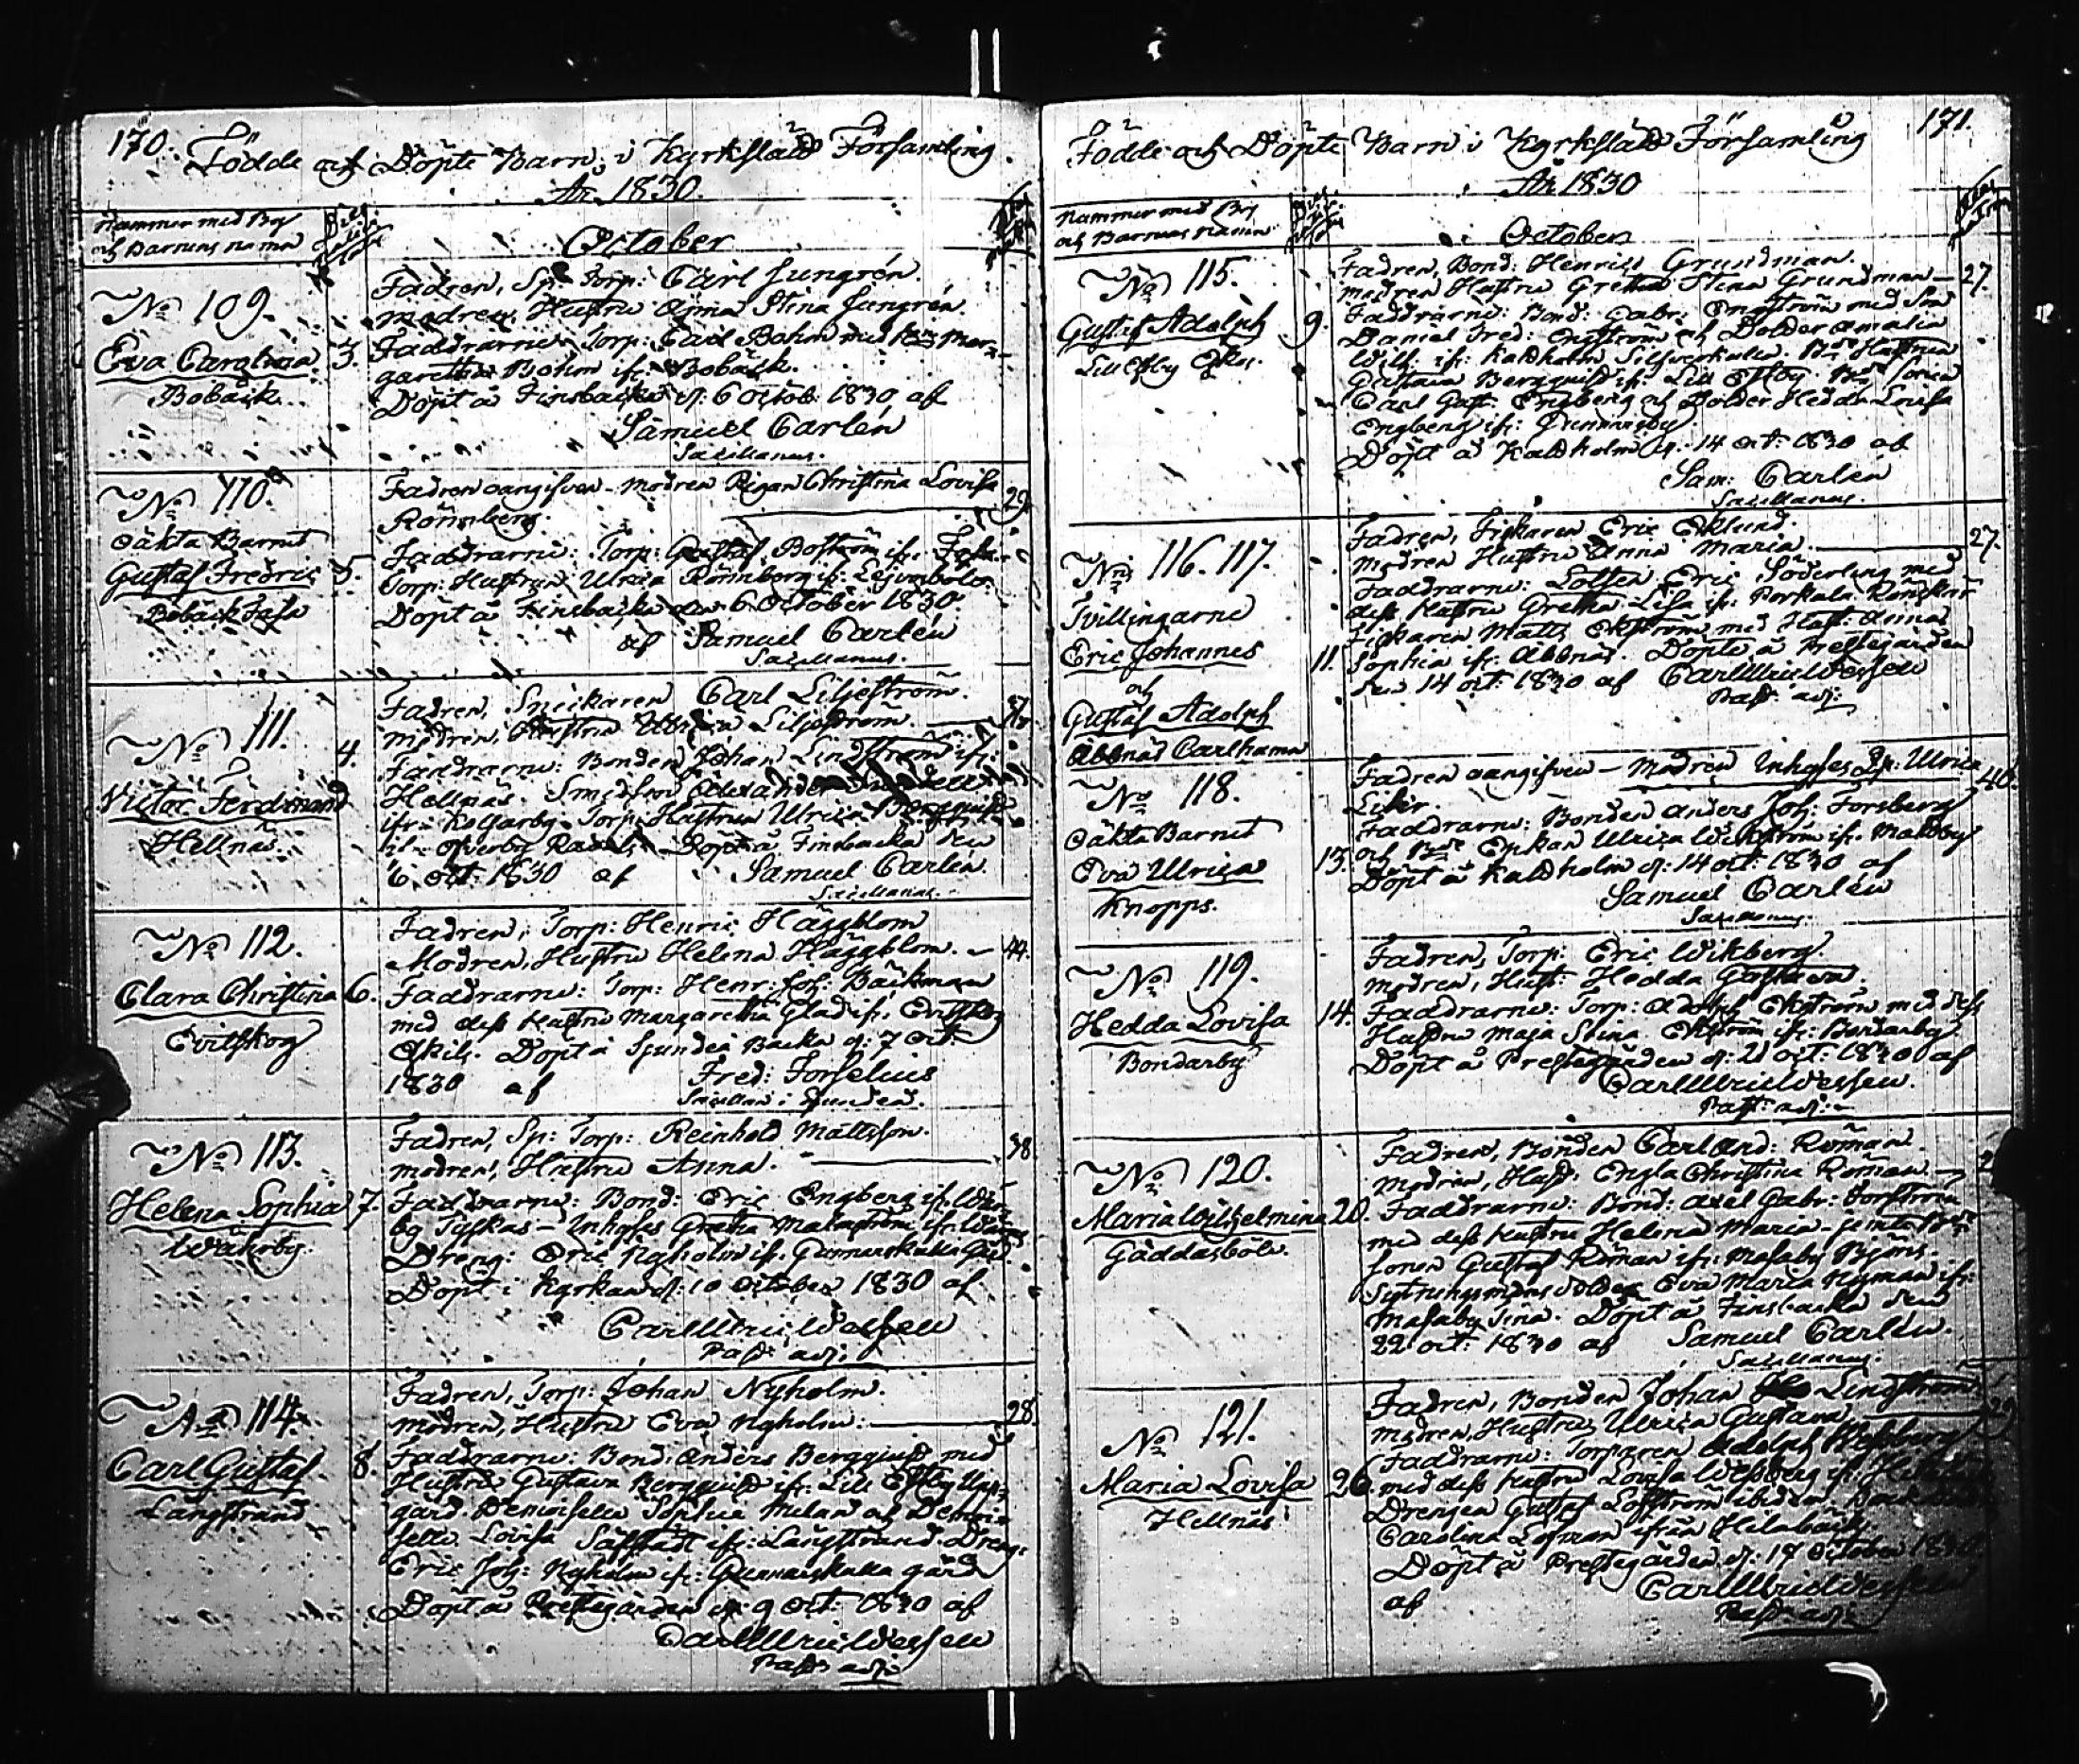 170. Födde och Döpte Barn i Kyrkslätt Församling
År 1830.
Nummer med By
och Barnens namn
October
No 109.
Eva Carolina 3.
Bobäck
Fadren, Sp: Torp: Carl Jungrén
Modren, Hustru Stina Jungrén
Faddrarne: Torp: Carl Bohm med Mar-
garetha Bohm ifr: Bobäck.
Döpt å Finsbacka d: 6 Octob: 1830 af
Samuel Carlén
Sacellanus.
No 110.
Oäkta Barnet
Gustaf Fredric 5.
Bobäck Jofs
Fadren oangifven - Modren Pigan Christina Lovisa
Rönnberg. 29.
Faddrarne: Torp: Gustaf Boström ifr:
Torp: Hustrun Ulrica Rönnberg ifr:
Döpt å Finsbacka den 6 October 1830.
af Samuel Carlén
Sacellanus.
No 111.
4.
Victor Ferdinand
Hellnäs
Fadren, Snickaren Carl Liljeström.
Modren, Hustru Liljeström.
Faddrarne: Bonden Johan Lindström ifr:
Hellnäs. Alexander
ifr: Kolsarby. Torp: Hustrun Ulrica
Döpt å Finsbacka den
6 Oct: 1830 af Samuel Carlén.
Sacellanus.
No 112.
Clara Christina 6.
Evitskog
Fadren, Torp: Henric Häggblom
Modren, Hustru Helena Häggblom. - 44.
Faddrarne: Torp: Henr: Joh: Bäckman
med dess Hustru Margaretha Glad ifr: Evitskog
Döpt i Sjundeå Backa d: 7 Oct:
1830 af Fred: Forselius
Sacellan i Sjundeå.
No 113.
Helena Sophia 7.
Währby.
Fadren, Sp: Torp: Reinhold Mattsson.
Modren, Hustru Anna. 38
Faddrarne: Bond: Eric Engberg ifr: Wär-
by Tyskas - Inhyses Gretha Malmström ifr:
Dreng: Eric Nyholm ifr: Gunnarskulla Gård.
Döpt i Kyrkan d: 10 October 1830 af
Carl Ulric Wessell
Past: adj:
No 114.
Carl Gustaf 8.
Långstrand
Fadren, Torp: Johan Nyholm.
Modren, Hustru Eva Nyholm: 28.
Faddrarne: Bond: Anders Bergquist med
Hustru Gustava Bergquist ifr: Lill Esby Upp-
gård. Demoisellen Sophie Melan och Demoi-
sellen Lovisa ifr: Långstrand. Dreng:
Eric Joh: Nyholm ifr: Gunnarskulla gård
Döpt å Prestegården d: 9 Oct: 1830 af
Carl Ulric Wessell
Past: adj:
171.
Födde och Döpte Barn i Kyrkslätt Församling
År 1830
Nummer med By
och Barnens namn
October
No 115.
Gustaf Adolph 9.
Lill Esby
Fadren, Bond: Henric Grundman.
Modren Hustru Gretha Stina Grundman - 27.
Faddrarne: Bond: Gabr: Engström med Son
Daniel Fred: Engström och Dotter Amalia
Wilh: ifr: Kaldholm Hustrun
Gustava Bergquist ifr: Lill Esby Bde Sonen
Carl Gust: Engberg och Dotter Hedda Lovisa
Engberg ifr:
Döpt å Kaldholm d: 14 Oct: 1830 af
Sam: Carlén
Sacellanus.
No 116. 117.
Tvillingarne
Eric Johannes 11.
och
Gustaf Adolph
Åbbnäs Carlhamn
Fadren, Fiskaren Eric Eklund.
Modren Hustru Anna Maria. 27.
Faddrarne: Lotsen Eric Söderling med
dess Hustru Gretha Lisa ifr: Porkala Rönskär
Fiskaren Matts Ekström med Hust: Anna
Sophia ifr: Åbbnäs. Döpte å Prestegården
den 14 Oct: 1830 af Carl Ulric Wessell
Past: adj:
No 118.
Oäkta Barnet
Eva Ulrica 13.
Knopps.
Fadren oangifven - Modren Inhyses Ulrica
40.
Faddrarne: Bonden Anders Joh: Forsberg
och Bde Enkan Ulrica Wickström ifr:
Döpt å Kaldholm d: 14 Oct: 1830 af
Samuel Carlén
Sacellanus.
No 119.
Hedda Lovisa 14.
Bondarby
Fadren, Torp: Eric Wikberg.
Modren, Hust: Hedda Gustava.
Faddrarne: Torp: Adolph Ekström med dess
Hustru Maja Stina Ekström ifr: Bondarby.
Döpt å Prestegården d: 21 Oct: 1830 af
Carl Ulric Wessell.
Past: adj:
No 120.
Maria Wilhelmina 20.
Gäddasböle.
Fadren, Bonden Carl And: Roman.
Modren, Hust: Engla Christina Roman
Faddrarne: Bond: Axel Gabr: Forström
med dess Hustru Helena Maria - jemte Bde
Sonen Gustaf Roman ifr: Masaby Björns.
dotter Eva Maria Nyman ifr:
Masaby Döpt å Finsbacka den
22 Oct: 1830 af Samuel Carlén.
Sacellanus.
No 121.
Maria Lovisa 26.
Hellnäs
Fadren, Bonden Johan Lindström
Modren, Hustru Ulrica Gustava 29
Faddrarne: Torparen Adolph Westberg
med dess Hustru Lovisa Westberg ifr:
Drengen Gustaf Löfström ibidem
Carolina Löfman ifrån Hilabäck.
Döpt å Prestegården d: 17 October 1830.
af Carl Ulric Wessell
Past: adj: